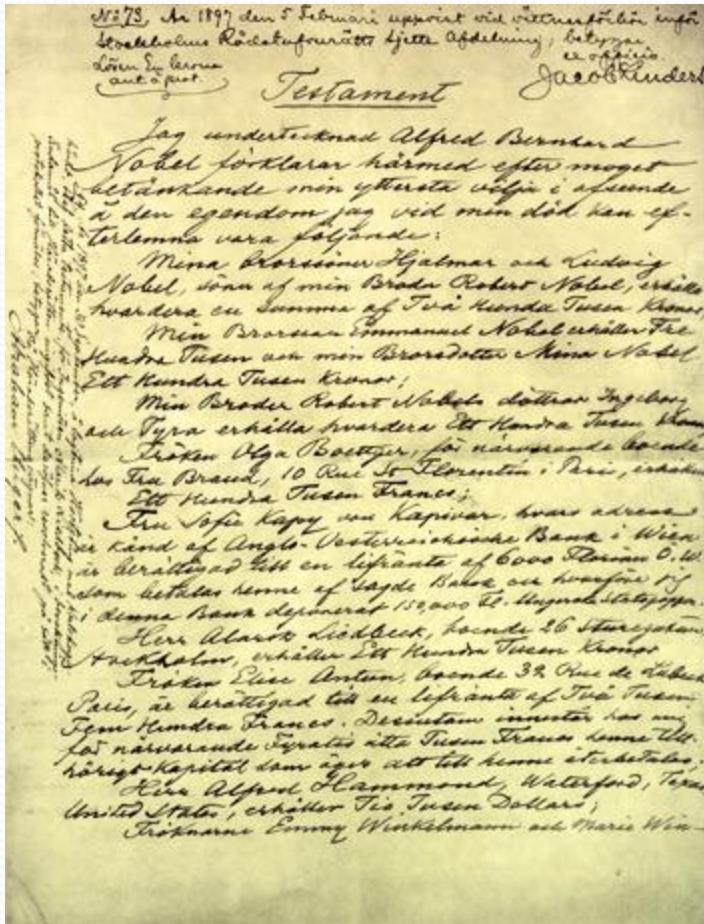 No 73, År 1897 den 5 Februari uppvist vid vittnesförhör inför
Stockholms Rådstufvurätts sjette Afdelning, betygar
Lösen En krona
ex officio.
Jacob Linders
Testament
Jag undertecknad Alfred Bernhard
Nobel förklarar härmed efter moget
betänkande min yttersta vilja i afseende
å den egendom jag vid min död kan ef-
terlemna vara följande:
Mina Brorsöner Hjalmar och Ludvig
Nobel, söner af min Broder Robert Nobel, erhålla
hvardera en summa af Två Hundra Tusen Kronor;
Min Brorson Emmanuel Nobel erhåller Tre
Hundra Tusen och min Brorsdotter Mina Nobel
Ett Hundra Tusen Kronor;
Min Broder Robert Nobels döttrar Ingeborg
och Tyra erhålla hvardera Ett Hundra Tusen Kronor
Fröken Olga Boettger, för närvarande boende
hos Fru Brand, 10 Rue St Florentin i Paris, erhåller
Ett Hundra Tusen Francs;
Fru Sofie Kapy von Kapivar, hvars adress
är känd af Anglo-Oesterreichische Bank i Wien
är berättigad till en lifränta af 6000 Florins Ö.W.
som betalas henne af sagde Bank och hvarföre jag
i denna Bank deponerat 150,000 Fl. Ungerska Statspapper.
Herr Alarik Liedbeck, boende 26 Sturegatan,
Stockholm, erhåller Ett Hundra Tusen Kronor
Fröken Elise Antun, boende 32 Rue de Lubeck
Paris, är berättigad till en lifränta af Två Tusen
Fem Hundra Francs. Desutom innestår hos mig
för närvarande Fyratio åtta Tusen Francs henne till-
hörigt Kapital som äger att till henne återbetalas;
Herr Alfred Hammond, Waterford, Texas
United States, erhåller Tio Tusen Dollars;
Fröknarne Emmy Winkelmann och Marie Win-